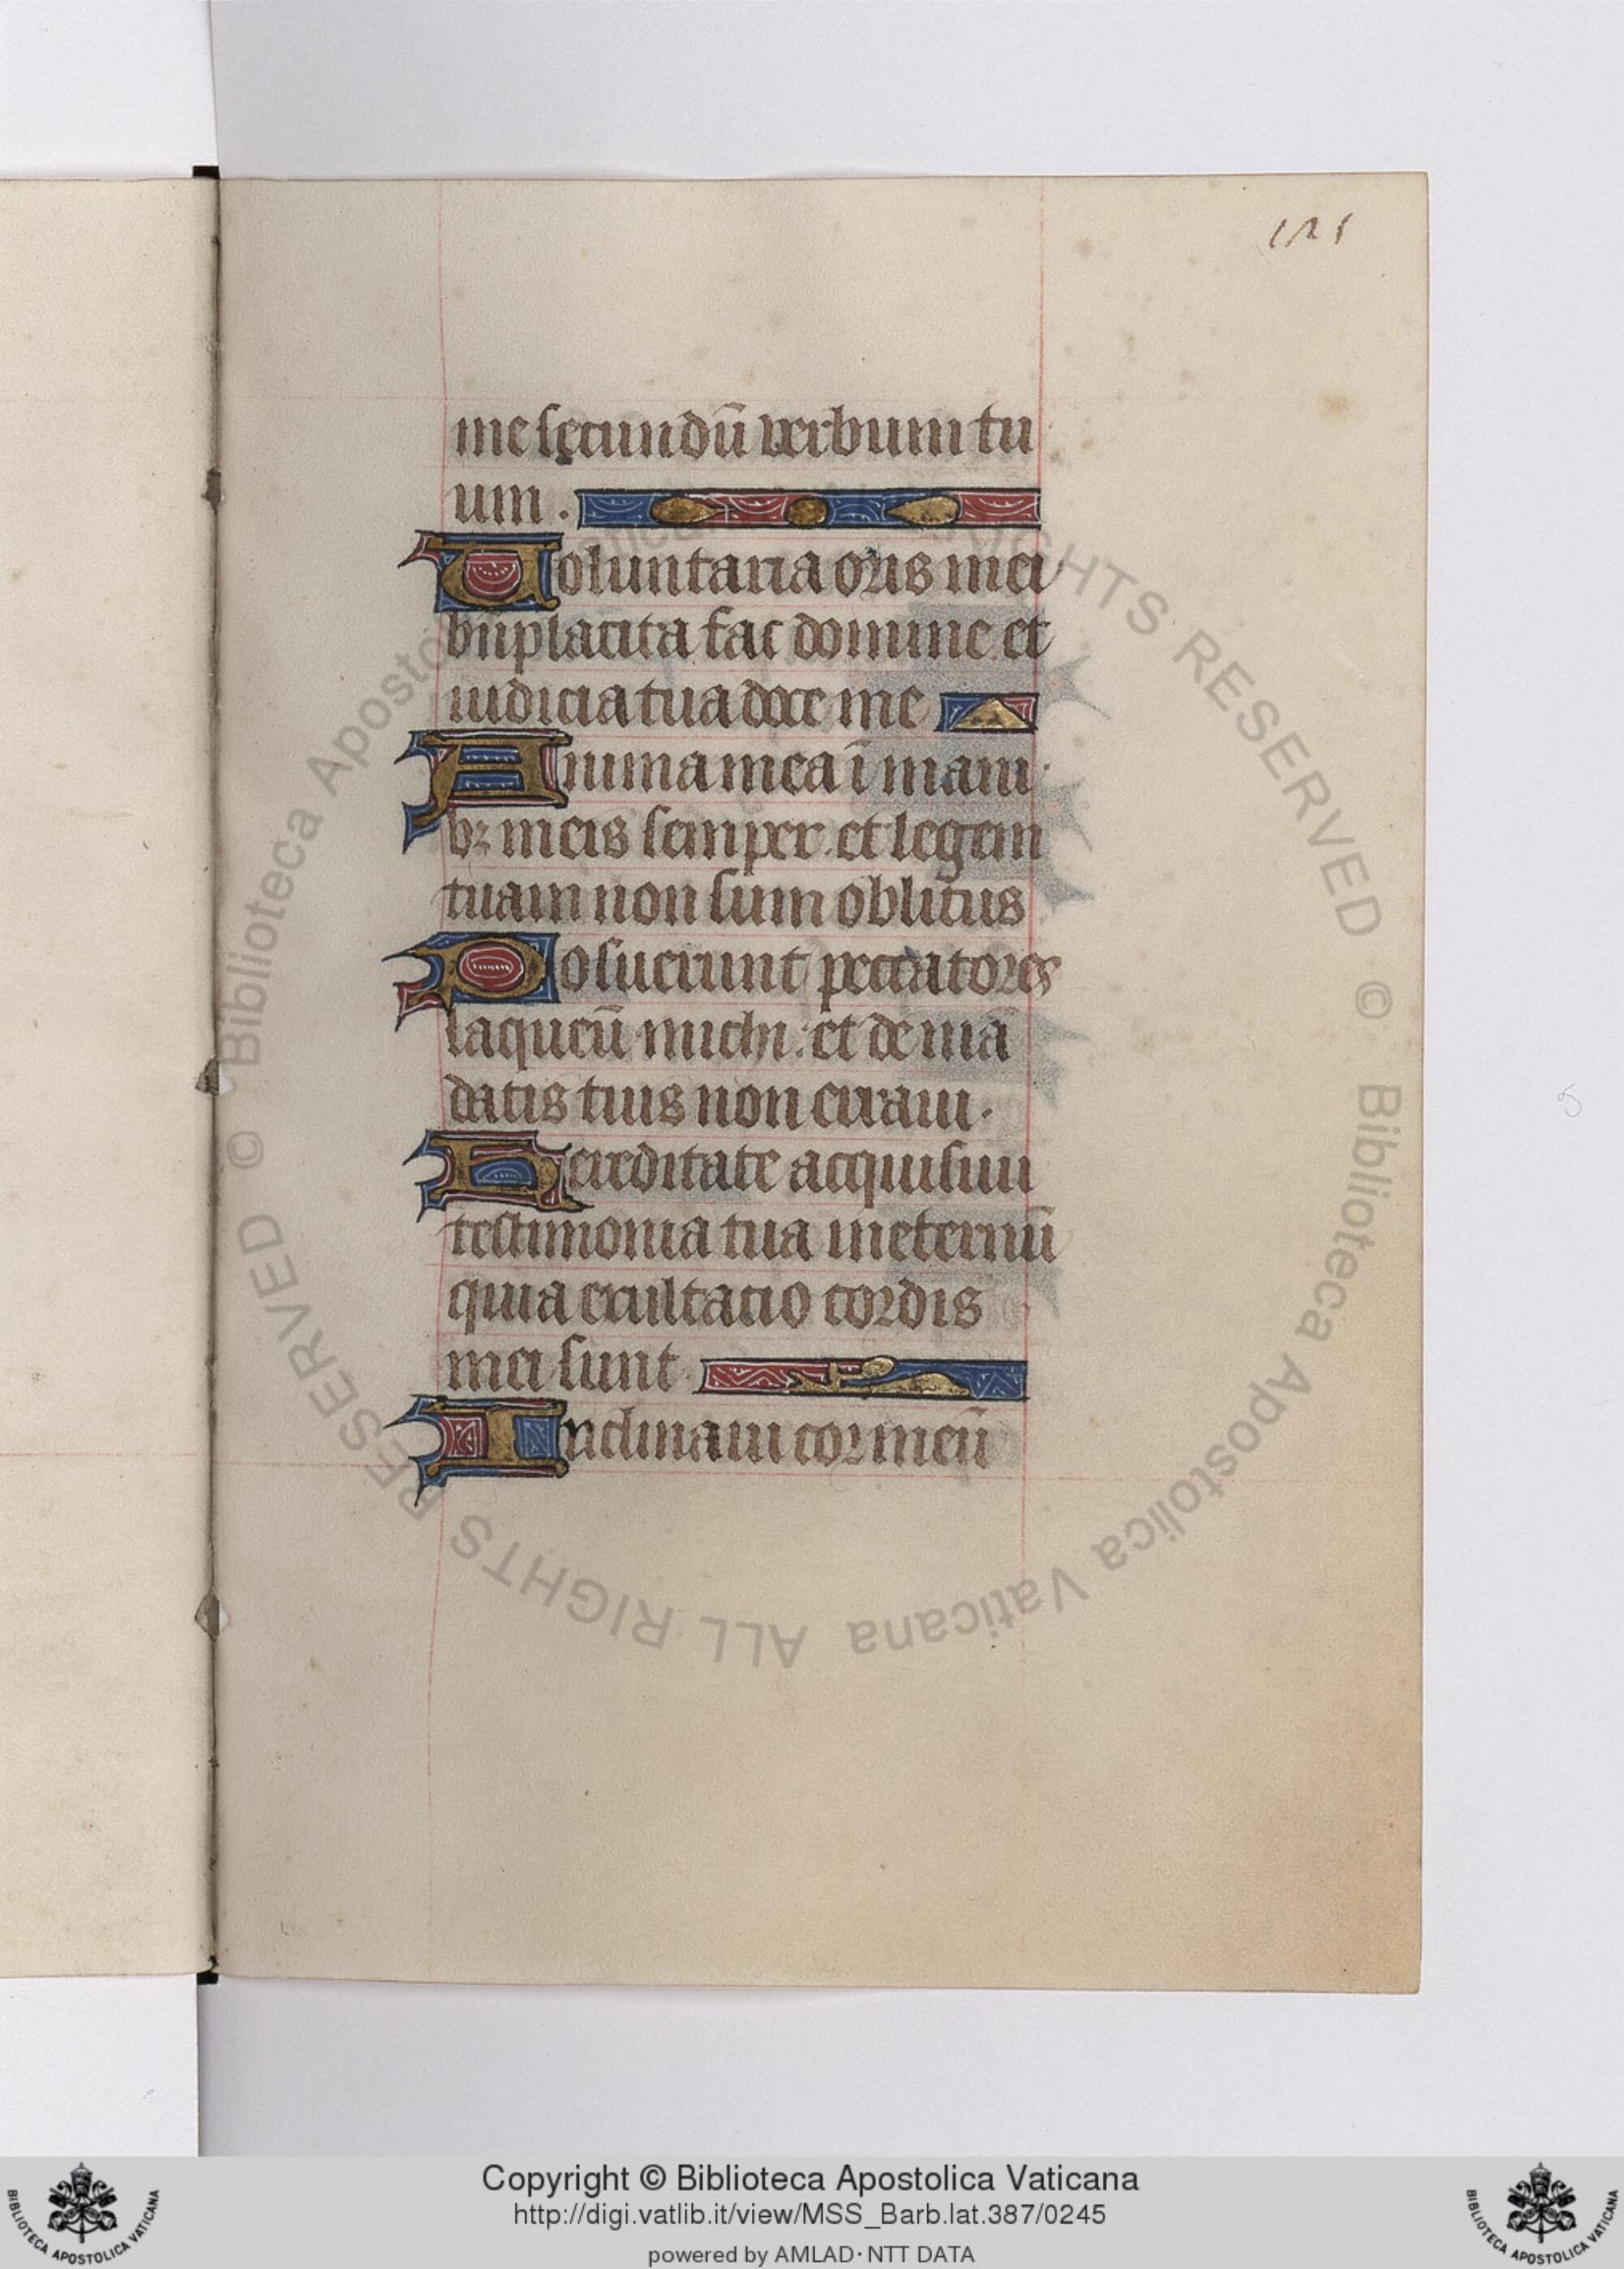 121
me secundū verbum tu
um.
Voluntaria oris mei
bn̄placita fac domine et
iudicia tua doce me
Anima mea ī mani
bꝫ meis semper. et legem
tuam non sum oblitus
Posuerunt peccatores
laqueū michi: et de mā
datis tuis non erraui.
Hereditate acquisiui
testimonia tua ineternū
quia exultatio cordis
mei sunt
Inclinaui cor meū
© Biblioteca Apostolica Vaticana ALL RIGHTS RESERVED © Biblioteca Apostolica Vaticana ALL RIGHTS RESERVED
Copyright © Biblioteca Apostolica Vaticana
http://digi.vatlib.it/view/MSS_Barb.lat.387/0245
powered by AMLAD·NTT DATA
BIBLIOTECA APOSTOLICA VATICANA
BIBLIOTECA APOSTOLICA VATICANA